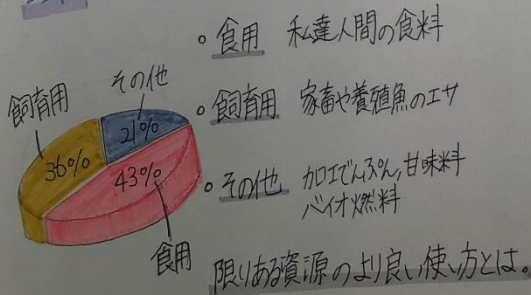 飼育用
その他
36%
21%
43%
食用
。食用 私達人間の食料
。飼育用 家畜や養殖魚のエサ
。その他 加工でんぷん,甘味料
バイオ燃料
限りある資源のより良い使い方とは。